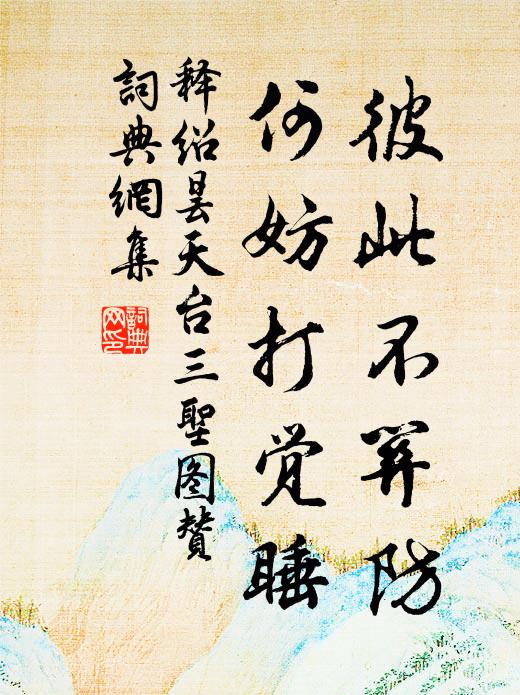 彼此不関防
何妨打觉睡
释绍昙天台三聖图贊
詞典網集
詞典网印